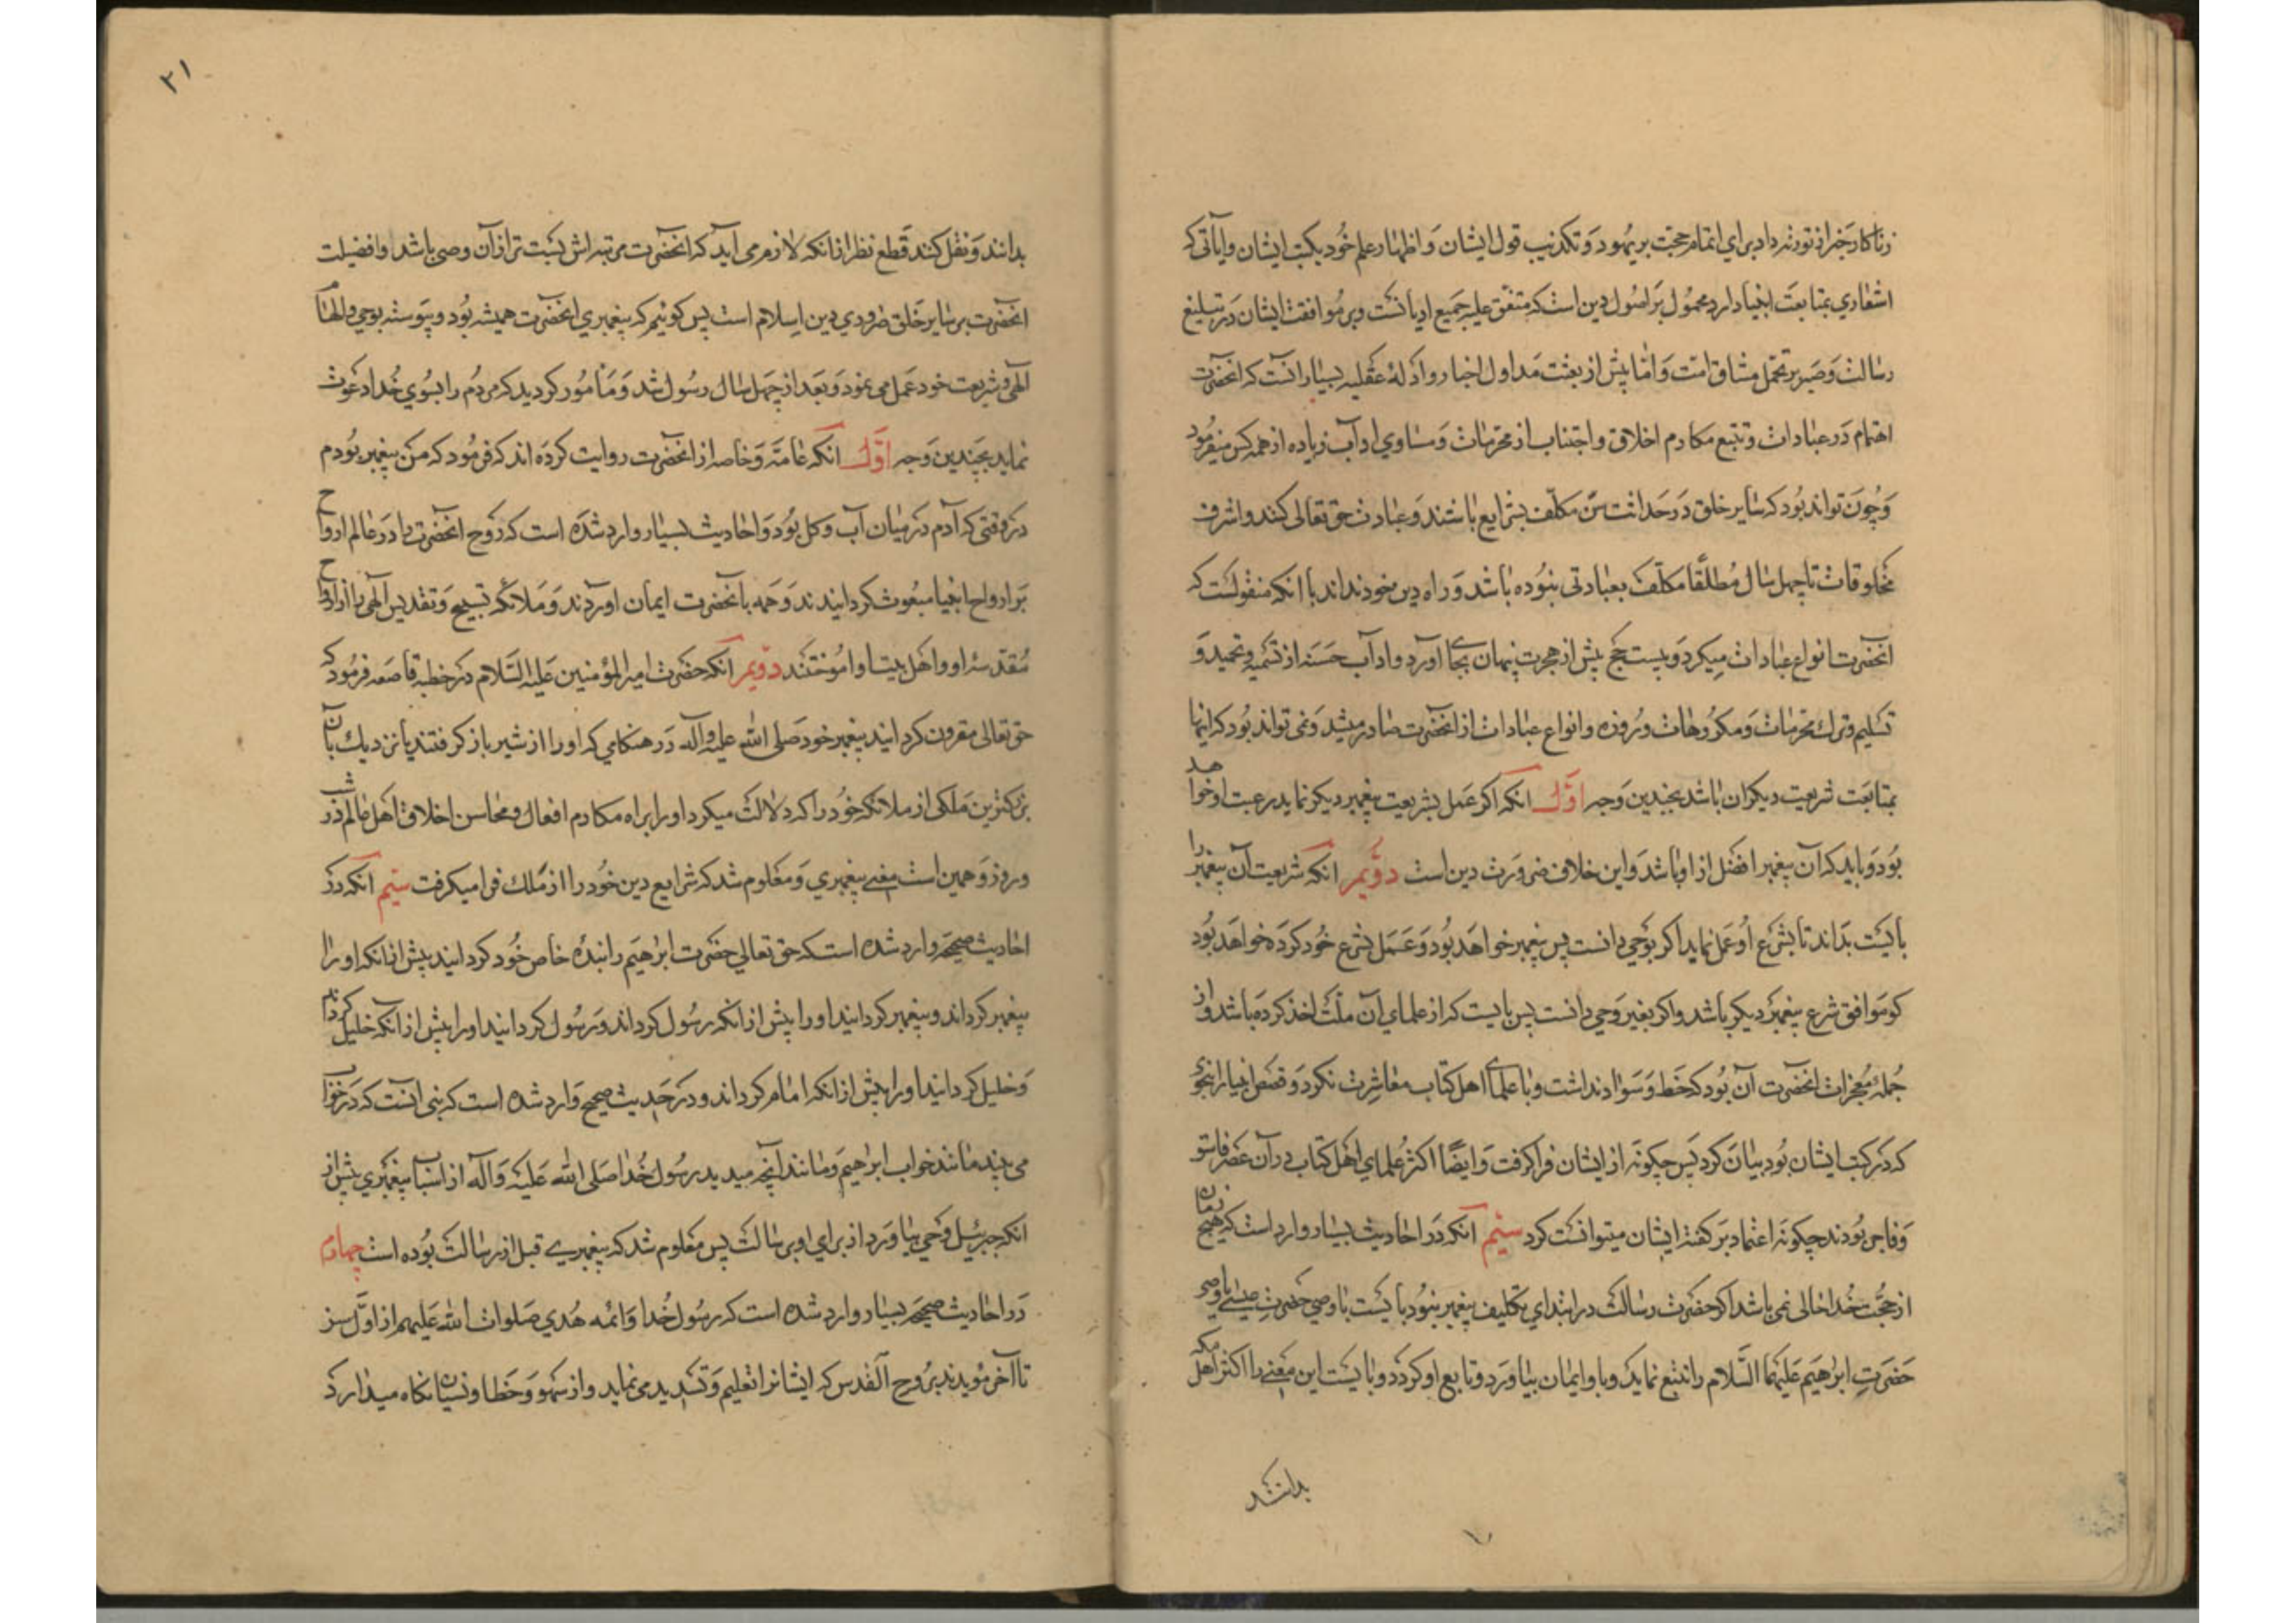 زناكار خبر از تورته داد برای اتمام حجت بر یهود و تکذیب قول ایشان و اظهار علم خود بکتب ایشان و ایاتی که
اشعاری بمتابعت انبیا دارد محمول بر اصول دین است که متفق علیه جمیع ادیانست و بر موافقت ایشان در تبلیغ
رسالت و صبر بر تحمل مشاق امت و اما پیش از بعثت مدلول اخبار و ادلهٔ عقلیه بسیار انست که انحضرت
اهتمام در عبادات و تتبع مکارم اخلاق و اجتناب از محرمات و مساوی اداب زیاده از همه کس میفرمود
و چون تواند بود که سایر خلق در حداثت سن مکلف بشرایع باشند و عبادت حق تعالی کنند و اشرف
مخلوقات تا چهل سال مطلقا مکلف بعبادتی نبوده باشد و راه دین خود نداند با انکه منقولست که
انحضرت انواع عبادات میکرد و بیست حج پیش از هجرت پنهان بجا اورد و اداب حسنه از تسمیه و تحمید و
تسلیم و ترک محرمات و مکروهات و روزه و انواع عبادات از انحضرت صادر میشد و نمی تواند بود که اینها
بمتابعت شریعت دیکران باشد بچندین وجه اول انکه اکر عمل بشریعت پیغمبر دیکر نماید رعیت او خواهد
بود و باید که آن پیغمبر افضل از او باشد و این خلاف ضرورت دین است دویم انکه شریعت آن پیغمبر را
بایست بداند تا بشرع او عمل نماید اکر بوحی دانست پس پیغمبر خواهد بود و عمل بشرع خود کرده خواهد بود
کو موافق شرع پیغمبر دیکر باشد و اکر بغیر وحی دانست پس بایست که از علمای آن ملت اخذ کرده باشد و از
جملهٔ معجزات انحضرت آن بود که خط و سواد نداشت و با علمای اهل کتاب معاشرت نکرد و قصص انبیا را بنحوی
که در کتب ایشان بود بیان کرد پس چکونه از ایشان فرا کرفت و ایضًا اکثر علمای اهل کتاب در آن عصر فاسق
و فاجر بودند چکونه اعتماد بر کفتهٔ ایشان میتوانست کرد سیم انکه در احادیث بسیار وارد است که هیچ زمان
از حجت خدا خالی نمی باشد اکر حضرت رسالت در ابتدای تکلیف پیغمبر نبود بایست با وصی حضرت عیسی یا وصی
حضرت ابرهیم علیهما السلام را تتبع نماید و باو ایمان بیاورد و تابع او کردد و بایست این معنی را اکثر اهل مکه
بدانند
۲۱
بدانند و نقل کنند قطع نظر از انکه لازم می آید که انحضرت مرتبه اش پست تر از آن وصی باشد و افضیلت
انحضرت بر سایر خلق ضروری دین اسلام است پس کوئیم که پیغمبری انحضرت همیشه بود و پیوسته بوحی و الهام
الهی و شریعت خود عمل می نمود و بعد از چهل سال رسول شد و مامور کردید که مردم را بسوی خدا دعوت
نماید بچندین وجه اول انکه عامه و خاصه از انحضرت روایت کرده اند که فرمود که من پیغمبر بودم
در وقتی که آدم در میان آب و کل بود و احادیث بسیار وارد شده است که روح انحضرت را در عالم ارواح
بر ارواح انبیا مبعوث کردانیدند و همه بانحضرت ایمان اوردند و ملائکه تسبیح و تقدیس الهی را از ارواح
مقدسهٔ او و اهل بیت او اموختند دویم انکه حضرت امیر المؤمنین علیه السلام در خطبه قاصعه فرمود که
حق تعالی مقرون کردانید پیغمبر خود صلی الله علیه و آله در هنکامی که او را از شیر باز کرفتند یا نزدیک بآن
بزرکترین ملکی از ملائکه خود را که دلالت میکرد او را براه مکارم افعال و محاسن اخلاق اهل عالم در شب
و روز و همین است معنی پیغمبری و معلوم شد که شرایع دین خود را از ملک فرا میکرفت سیم انکه در
احادیث صحیحه وارد شده است که حق تعالی حضرت ابرهیم را بندهٔ خاص خود کردانید پیش از انکه او را
پیغمبر کرداند و پیغمبر کردانید او را پیش از انکه رسول کرداند و رسول کردانید او را پیش از انکه خلیل کرداند
و خلیل کردانید او را پیش از انکه امام کرداند و در حدیث صحیح وارد شده است که نبی انست که در خواب
می بیند مانند خواب ابراهیم و مانند آنچه میدید رسول خدا صلی الله علیه و آله از اسباب پیغمبری پیش از
انکه جبرئیل وحی بیاورد از برای او برسالت پس معلوم شد که پیغمبری قبل از رسالت بوده است چهارم
در احادیث صحیحه بسیار وارد شده است که رسول خدا و ائمه هدی صلوات الله علیهم از اول سن
تا آخر مؤیدند بروح القدس که ایشانرا تعلیم و تسدید می نماید و از سهو و خطا و نسیان نکاه میدارد